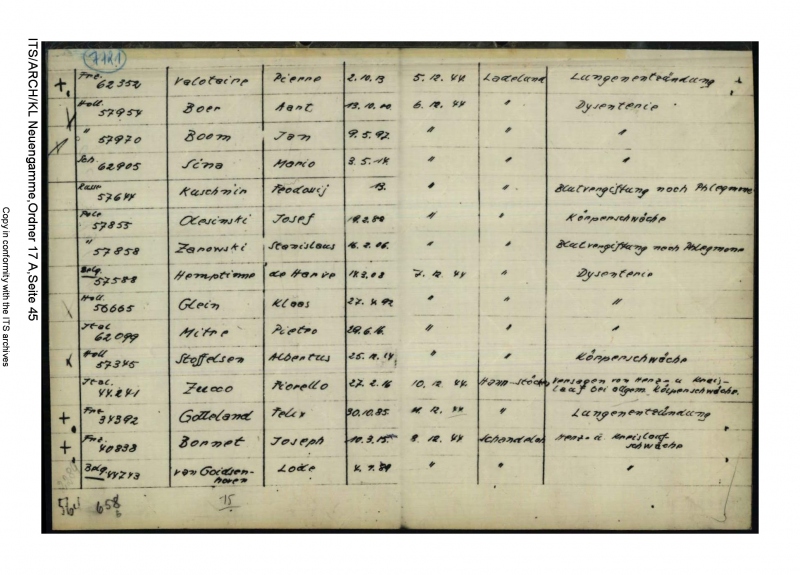 7121
Frz. 62352 Valotaire Pierre 2.10.13 5.12.44 Ladelund Lungenentzündung
Holl. 57954 Boer Aart 13.10.00 6.12.44 " Dysenterie
" 57970 Boom Jan 9.5.92 " " "
62905 Sina Mario 3.5.14 " " "
57644 Kuschnir Feodorij 13. " " Blutvergiftung nach Phlegmone
Pole 57855 Olesinski Josef " " Körperschwäche
" 57858 Zarowski Stanislaus 16.2.06. " " Blutvergiftung nach Phlegmone
Belg. 57588 Hemptinne de Harve 7.12.44 " Dysenterie
Holl. 56665 Glein Klaas 27.4.92 " " "
Ital. 62099 Mitre Pietro 29.6.16. " " "
Holl. 57345 Stoffelsen Albertus 25.12.14 " " Körperschwäche
Ital. 44241 Zucco Fiorello 27.2.16 10.12.44 Versagen von Herz- u Kreis-
lauf bei allgem. Körperschwäche.
Frz. 34392 Gotteland Felix 30.10.85 12.44 " Lungenentzündung
Frz. 40838 Bonnet Joseph 10.3.15 8.12.44 Schandelah Herz- u Kreislauf
schwäche
Belg. 44743 van Goidsen-
hoven Lode 4.7.89 " " "
564 658 15
ITS/ARCH/KL Neuengamme,Ordner 17 A,Seite 45
Copy in conformity with the ITS archives